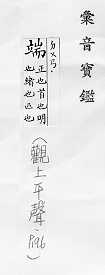 彙音寶鑑
ㄉㄨㄢ
端
正也首也明
也緒也匹也
(觀上平聲·P196